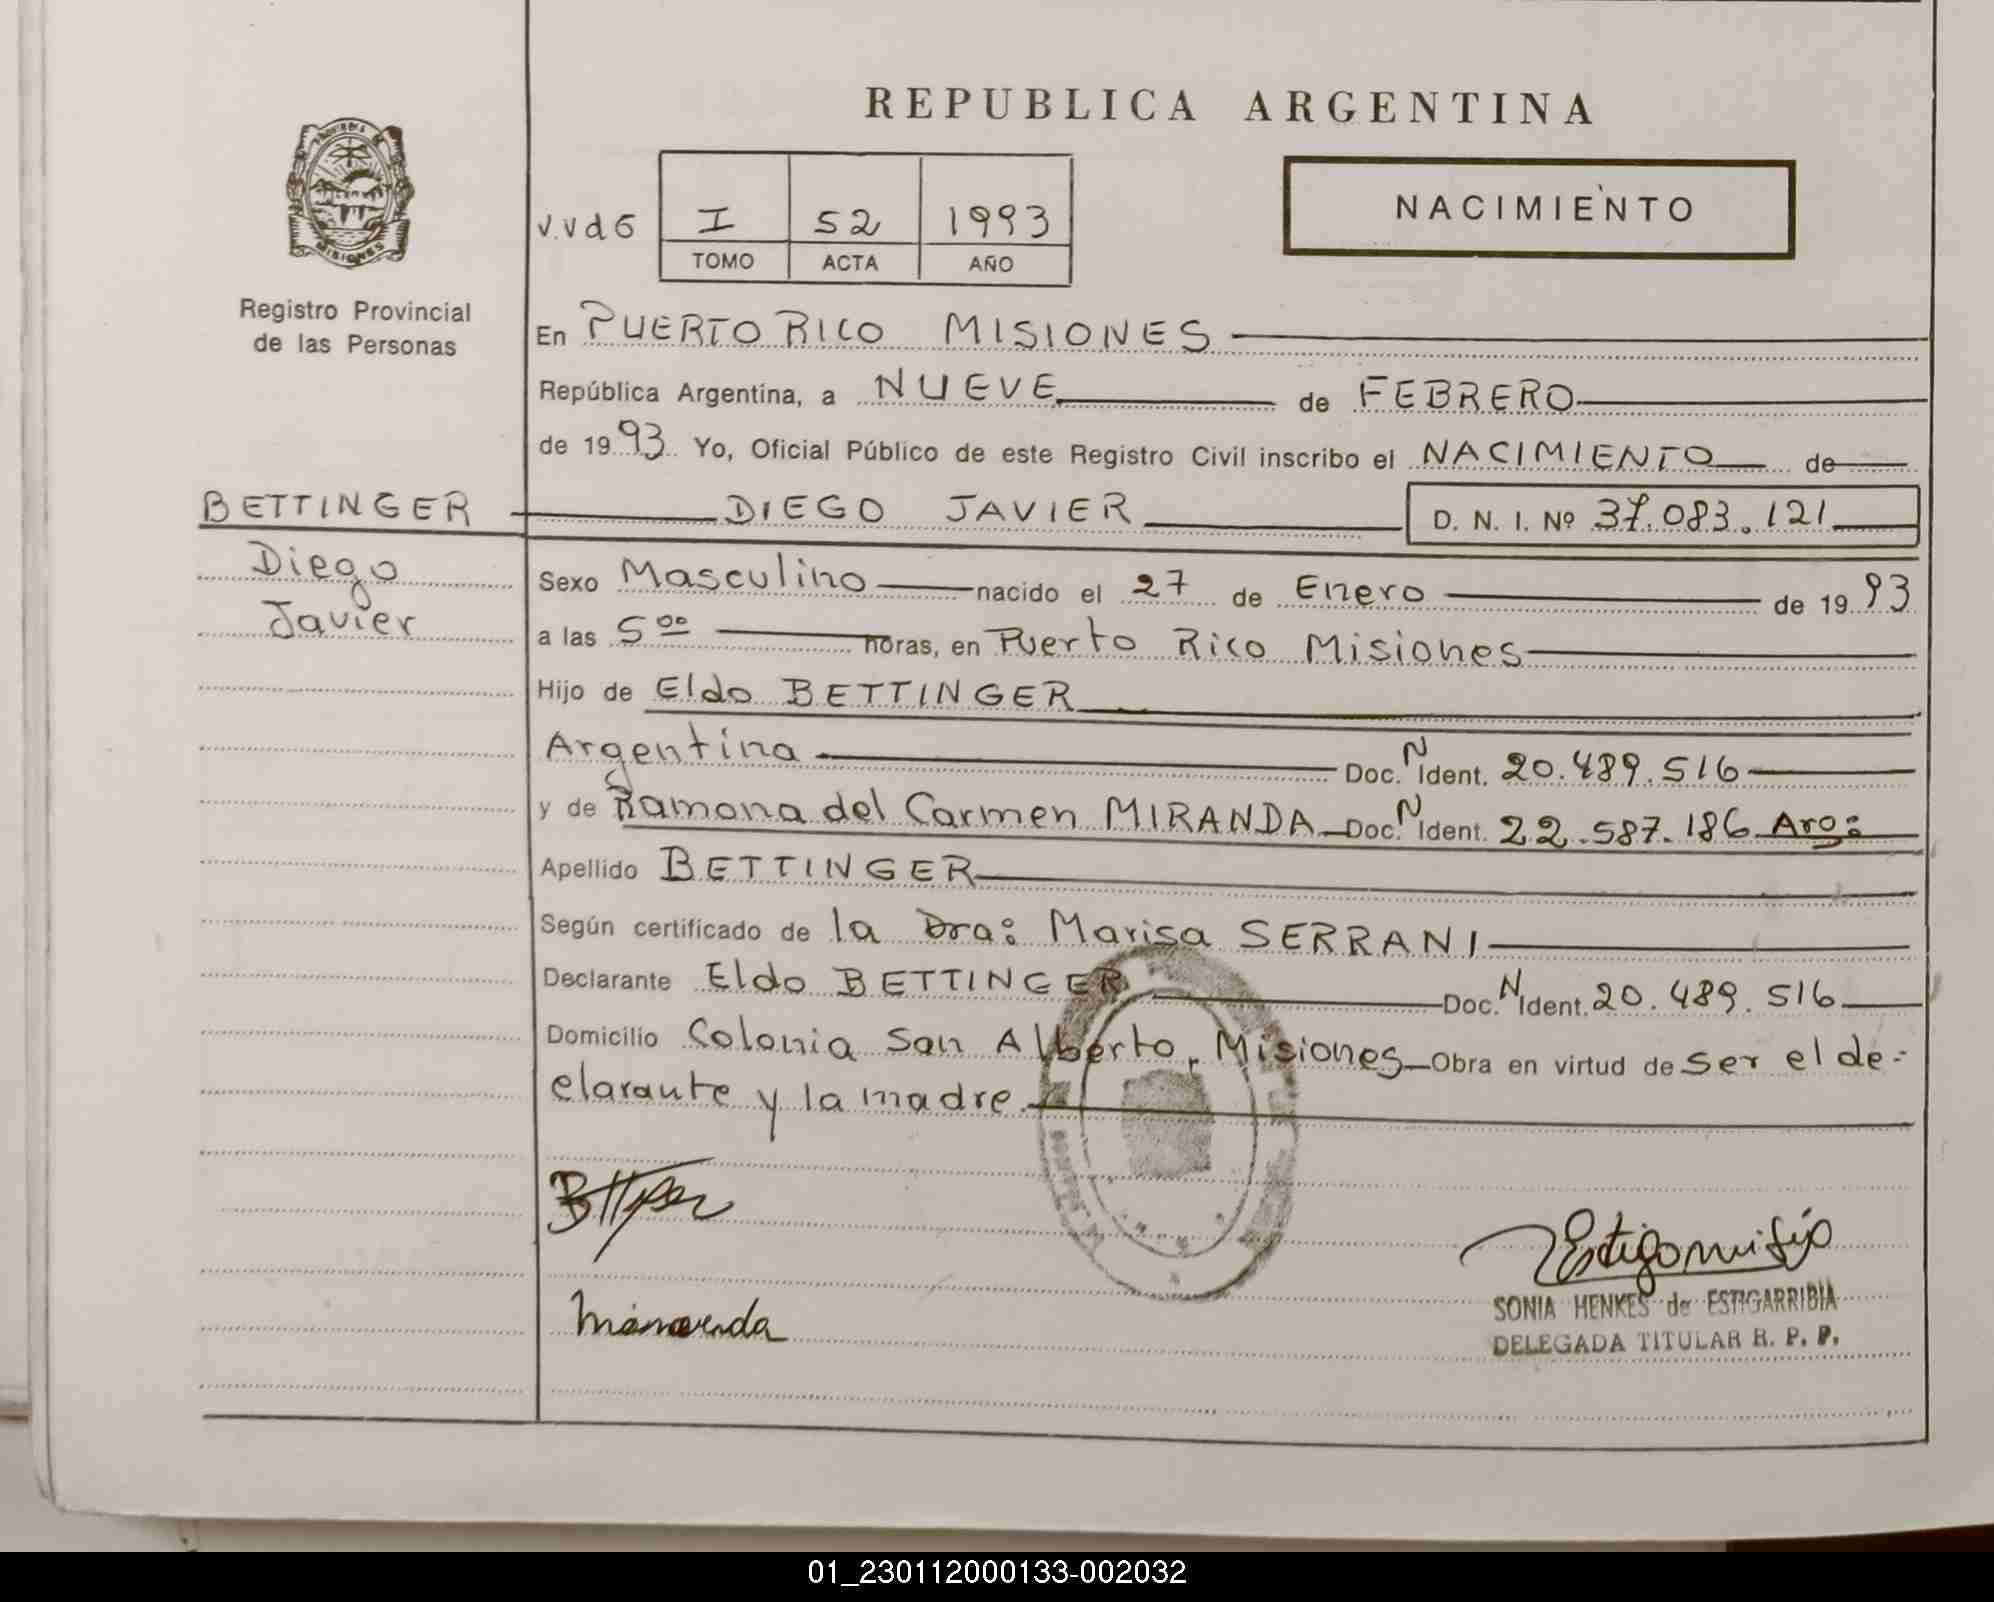 REPUBLICA ARGENTINA
NACIMIENTO
I 52 1993
TOMO ACTA AÑO
MISIONES
Registro Provincial
de las Personas
En PUERTO RICO MISIONES
República Argentina, a NUEVE de FEBRERO
de 1993 Yo, Oficial Público de este Registro Civil inscribo el NACIMIENTO de
BETTINGER DIEGO JAVIER D. N. I. Nº 37.083.121
Diego
Javier
Sexo Masculino nacido el 27 de Enero de 1993
a las 5 00 horas, en Puerto Rico Misiones
Hijo de Eldo BETTINGER
Argentina Doc. N Ident. 20.489.516
y de Ramona del Carmen MIRANDA Doc. N Ident. 22.587.186 Arg:
Apellido BETTINGER
Según certificado de la Dra: Marisa SERRANI
Declarante Eldo BETTINGER Doc. N Ident. 20.489.516
Domicilio Colonia San Alberto, Misiones Obra en virtud de ser el de-
clarante y la madre.
SONIA HENKES de ESTIGARRIBIA
DELEGADA TITULAR R. P. P.
01_230112000133-002032